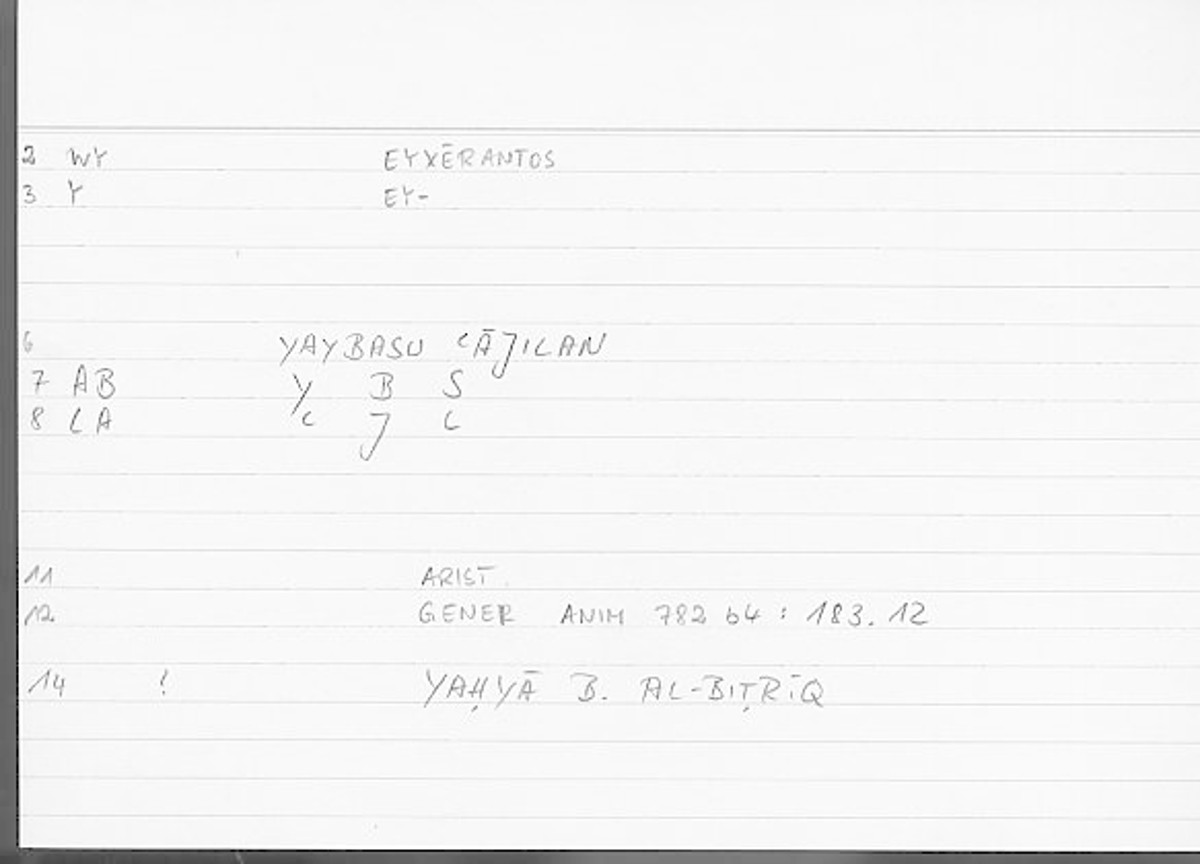 2 WY EYXĒRANTOS
3 Y EY-
6 YAYBASU ʿĀJILAN
7 AB Y B S
8 LA ʿ J L
11 ARIST.
12 GENER ANIM 782 b4 : 183.12
14 ! YAḤYĀ B. AL-BIṬRĪQ